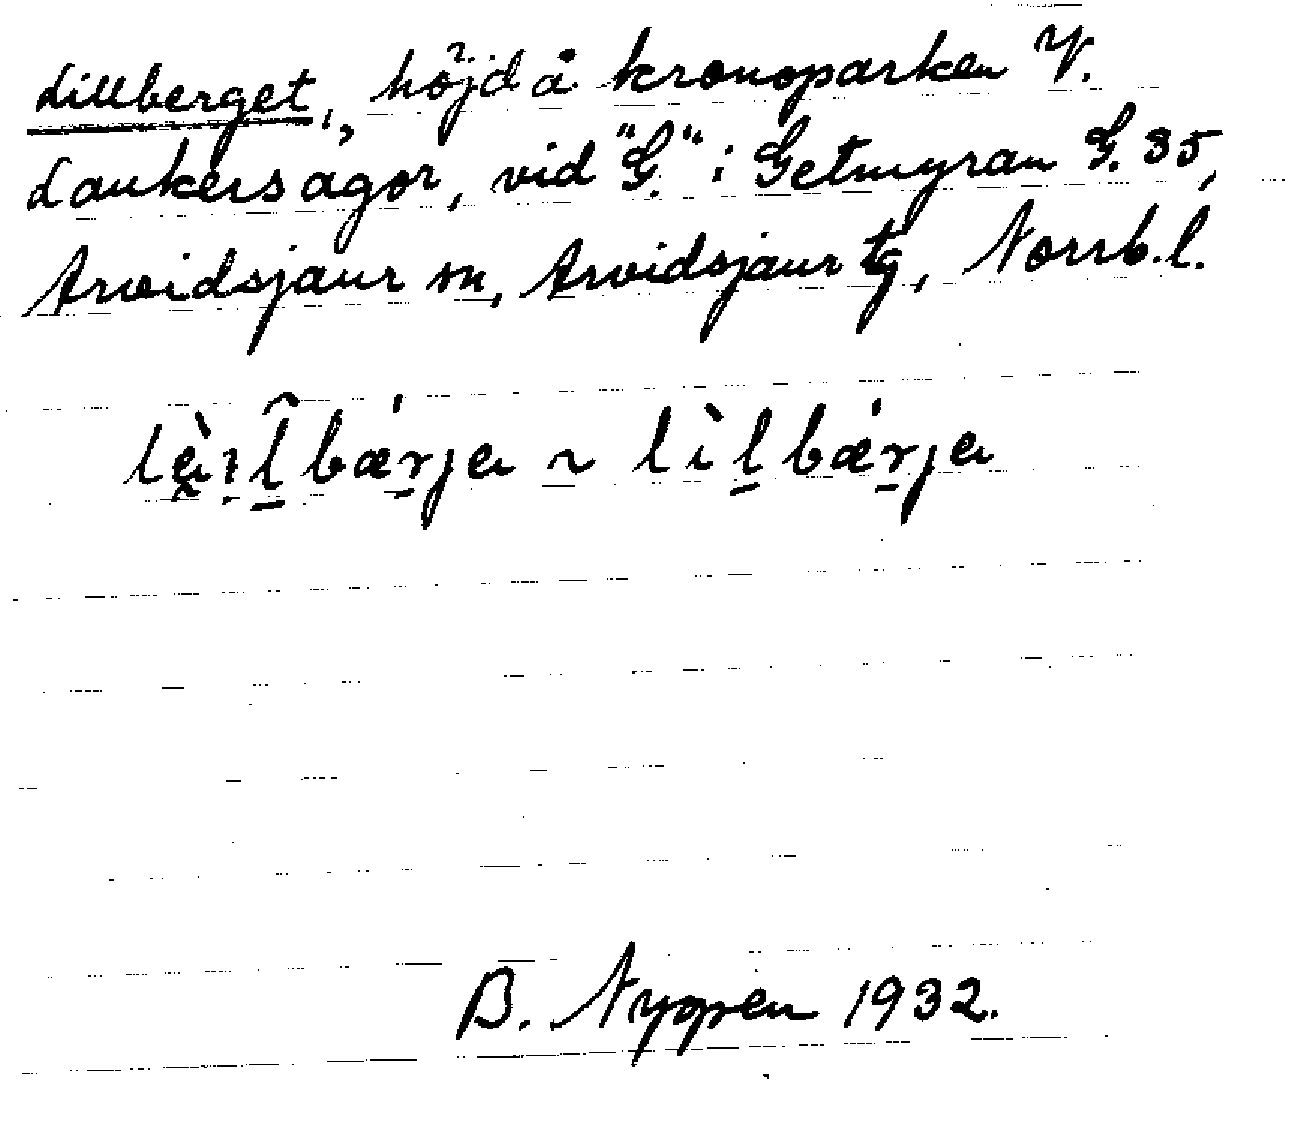 Lillberget, höjd å kronoparken V.
Laukersågor, vid "G." i Getmyran G. 35,
Arvidsjaur sn, Arvidsjaur tg, Norrb. l.
lìl̠bǽr̠ja
B. Nygren 1932.